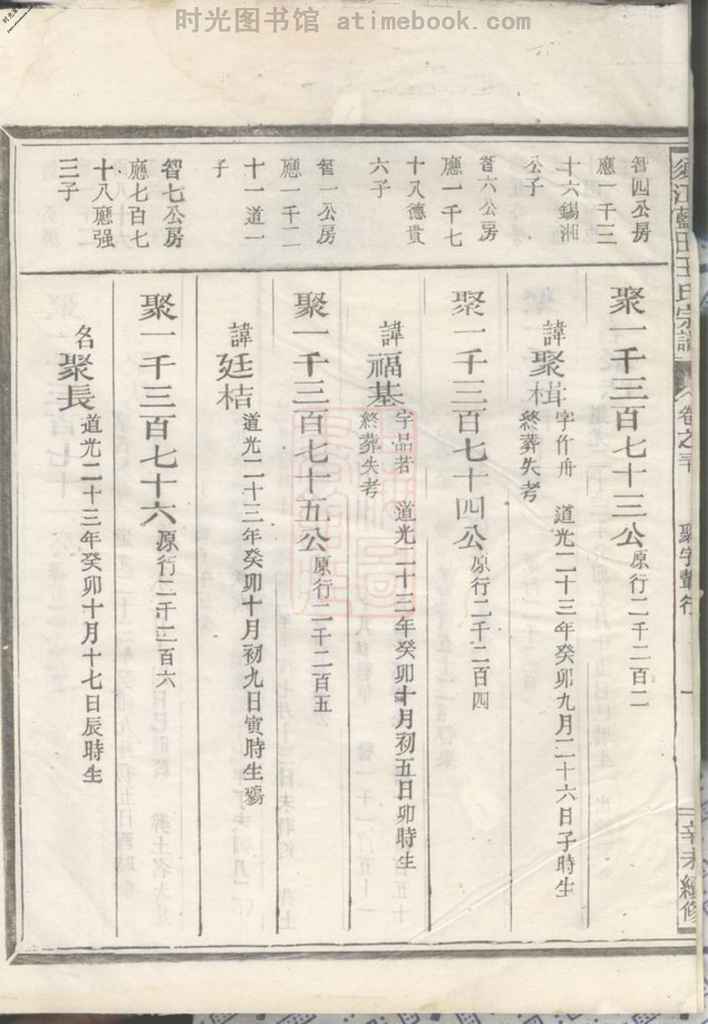 时光图书馆 atimebook.com
須江藍田王氏宗譜
卷之
聚字輩行
一
辛未經修
智四公房
應一千三
十六錫湘
公子
聚一千三百七十三公 原行二千二百二
諱聚楫 字作舟 道光二十三年癸卯九月二十六日子時生
終葬失考
智六公房
應一千七
十八德貴
六子
聚一千三百七十四公 原行二千二百四
諱福基 字品若 道光二十三年癸卯十月初五日卯時生
終葬失考
智一公房
應一千二
十一道一
子
聚一千三百七十五公 原行二千二百五
諱廷桔 道光二十三年癸卯十月初九日寅時生殤
智七公房
應七百七
十八應強
三子
聚一千三百七十六 原行二千二百六
名聚長 道光二十三年癸卯十月十七日辰時生